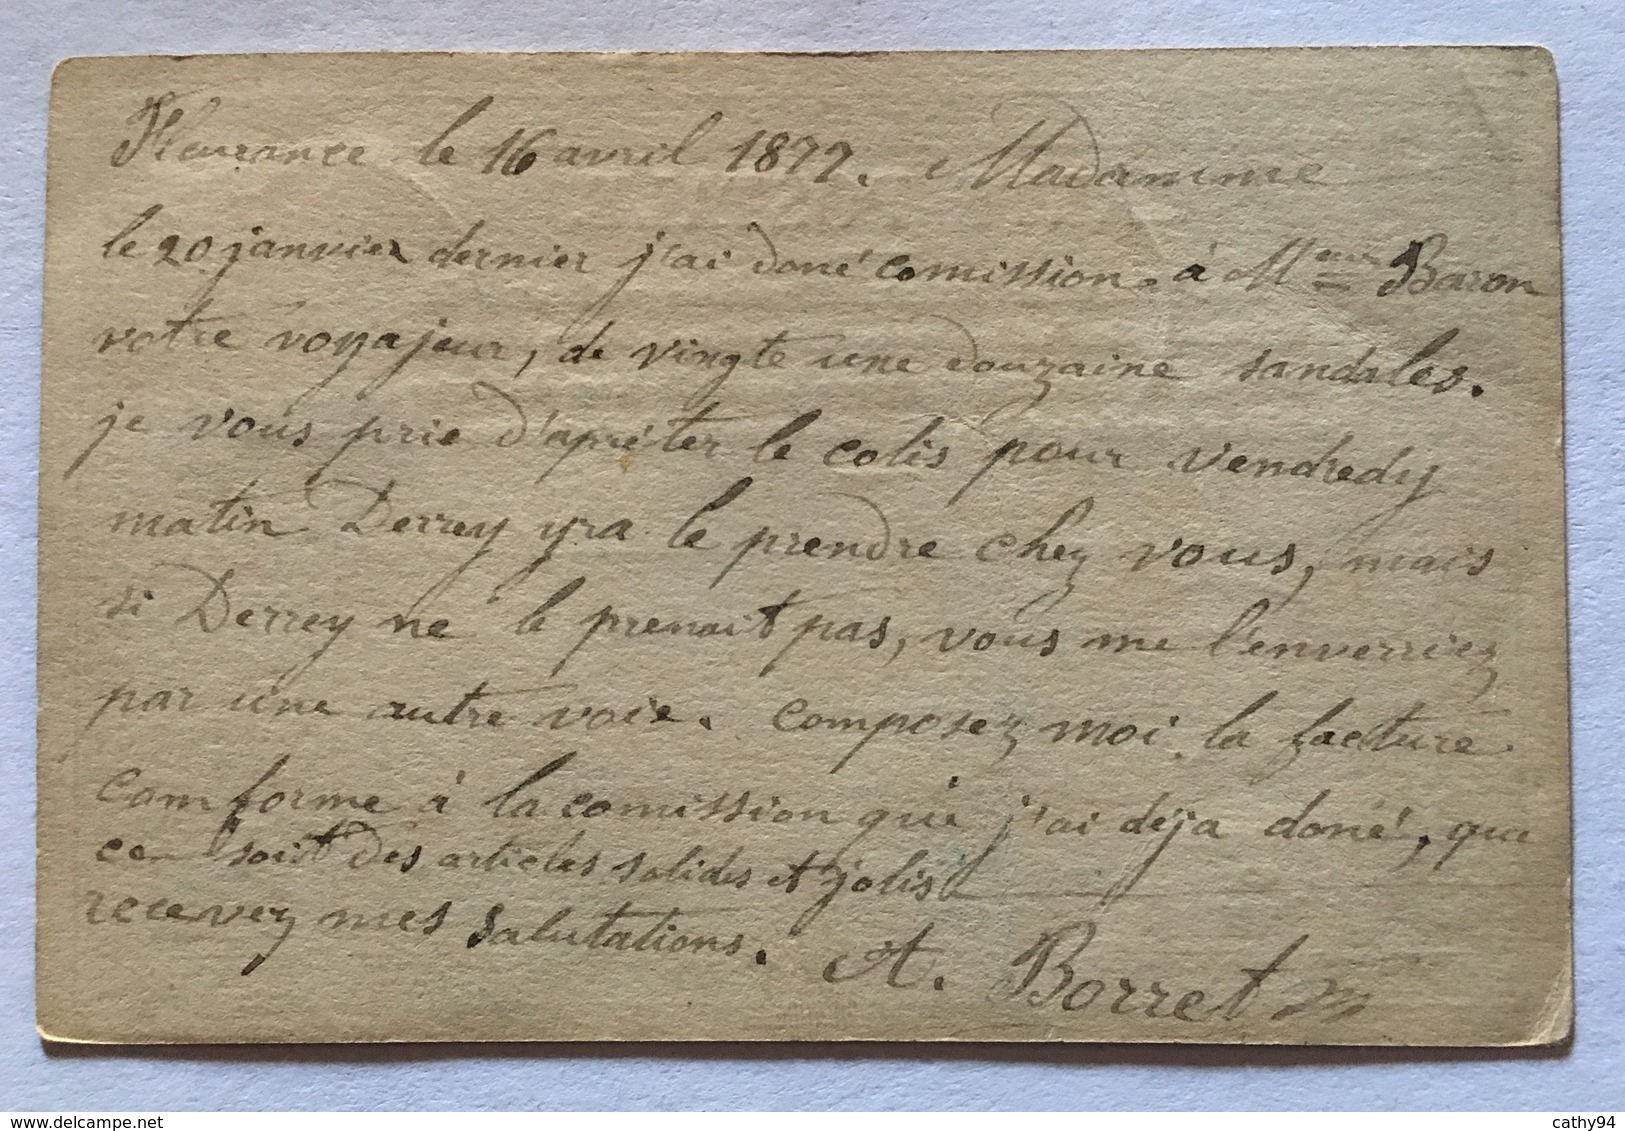 Fleurance le 16 avril 1877. Madamme
le 20 janvier dernier j'ai doné comission à M Baron
votre voyajeur, de vingte une douzaine sandales.
je vous prie d'apréter le colis pour vendredy
matin Derrey yra le prendre chez vous, mais
si Derrey ne le prenait pas, vous me l'enverriez
par une autre voie. composez moi la facture
comforme à la comission que j'ai déja doné, que
ce soit des articles solides et jolis
recevez mes salutations. A. Borret
cathy94
delcampe.net